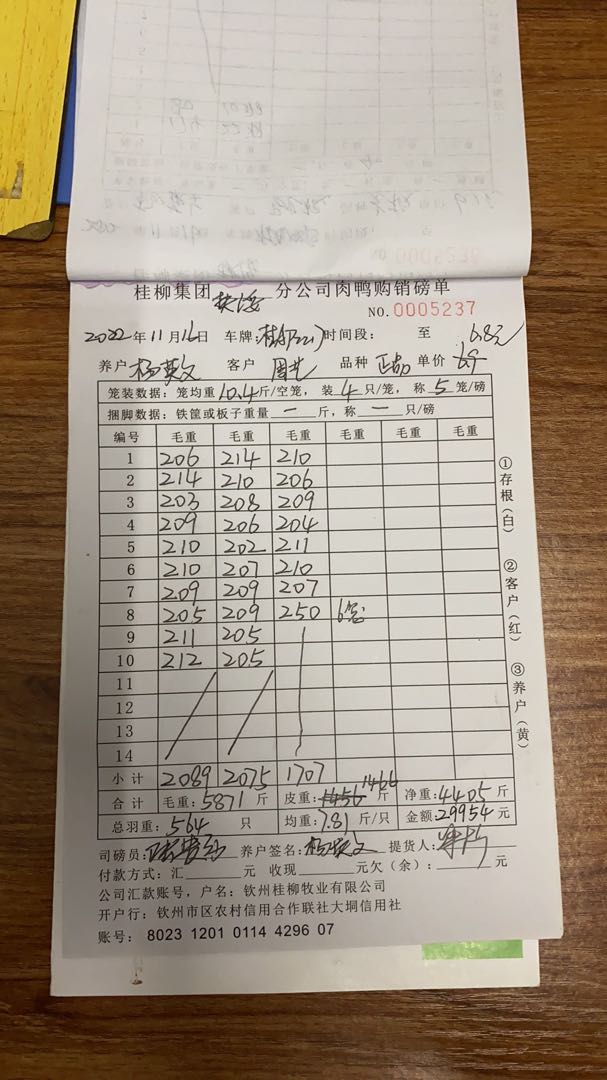 桂柳集团 分公司肉鸭购销磅单
NO.0005237
2022年11月16日 车牌: 时间段: 至 6.8元
养户 杨英文 客户 品种 单价 6.9
笼装数据:笼均重10.4斤/空笼,装4只/笼,称5笼/磅
捆脚数据:铁筐或板子重量一斤,称一只/磅
编号 毛重 毛重 毛重 毛重 毛重 毛重
1 206 214 210
2 214 210 206
3 203 208 209
4 209 206 204
5 210 202 211
6 210 207 210
7 209 209 207
8 205 209 250 6笼
9 211 205
10 212 205
11
12
13
14
小计 2089 2075 1707
合计 毛重:5871斤 皮重:1456 1466斤 净重:4405斤
总羽重:564只 均重:7.81斤/只 金额:29954元
司磅员: 养户签名:杨英文 提货人:
付款方式:汇 元 收现 元欠(余): 元
公司汇款账号,户名:钦州桂柳牧业有限公司
开户行:钦州市区农村信用合作联社大垌信用社
账号: 8023 1201 0114 4296 07
①存根(白)
②客户(红)
③养户(黄)